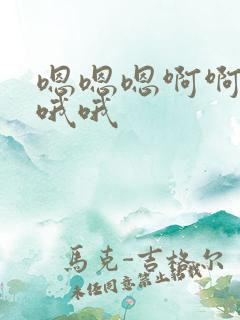 嗯嗯嗯啊啊
哦哦
馬克-吉格尔
未经同意禁止转载